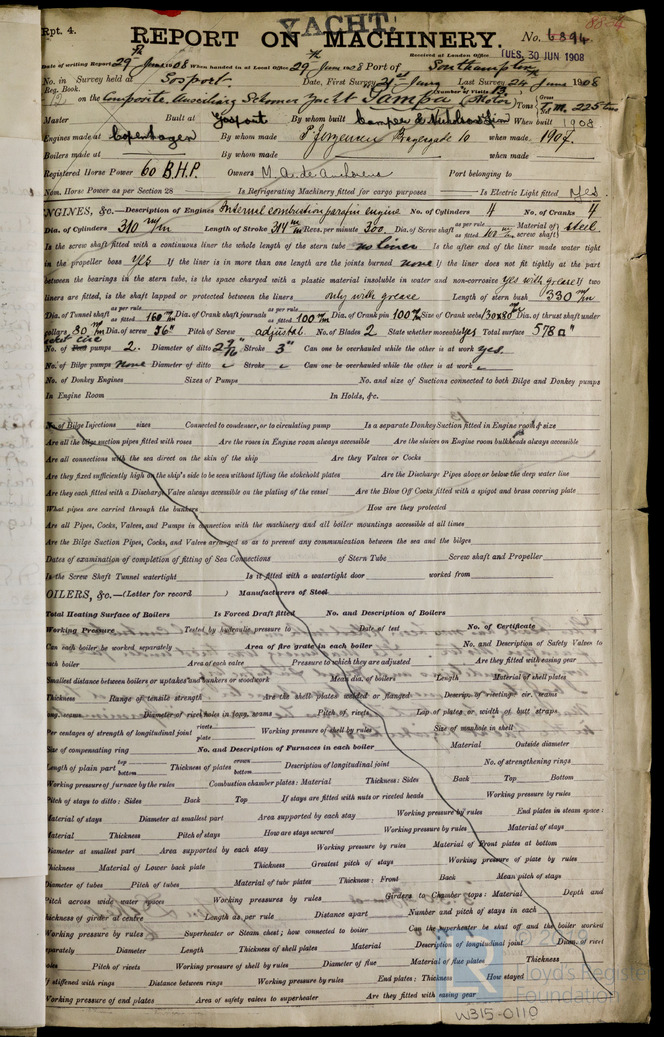 YACHT.
Rpt. 4.
REPORT ON MACHINERY.
No. 6894
Date of writing Report 29th June 1908 When handed in at Local Office 29th June 1908 Port of Southampton
Received at London Office TUES. 30 JUN 1908
No. in Survey held at Gosport. Date, First Survey 21st Last Survey 24 June 1908
Reg. Book. (Number of Visits
on the Composite Auxiliary Schooner Yacht (Motor) Tons Gross T.M. 225 tons
Master Built at Gosport By whom built Camper & Nicholson Lim When built 1908
Engines made at Copenhagen By whom made 10 when made 1907.
Boilers made at By whom made when made
Registered Horse Power 60 B.H.P. Owners Port belonging to
Nom. Horse Power as per Section 28 Is Refrigerating Machinery fitted for cargo purposes Is Electric Light fitted Yes
NGINES, &c.—Description of Engines Internal combustion parafin engine No. of Cylinders 4 No. of Cranks 4
Dia. of Cylinders 310 m/m Length of Stroke 314 m/m Revs. per minute 300 Dia. of Screw shaft as per rule as fitted Material of screw shaft steel
Is the screw shaft fitted with a continuous liner the whole length of the stern tube no liner Is the after end of the liner made water tight
in the propeller boss yes If the liner is in more than one length are the joints burned none If the liner does not fit tightly at the part
between the bearings in the stern tube, is the space charged with a plastic material insoluble in water and non-corrosive yes with grease If two
liners are fitted, is the shaft lapped or protected between the liners only with grease Length of stern bush 330 m/m
Dia. of Tunnel shaft as per rule as fitted 160 m/m Dia. of Crank shaft journals as per rule as fitted 100 m/m Dia. of Crank pin 100 m/m Size of Crank webs 130x80 m/m Dia. of thrust shaft under
collars 80 m/m Dia. of screw 56" Pitch of Screw adjustal No. of Blades 2 State whether moveable yes Total surface 578 □"
No. of pumps 2. Diameter of ditto 2 7/16" Stroke 3" Can one be overhauled while the other is at work yes.
No. of Bilge pumps none Diameter of ditto Stroke Can one be overhauled while the other is at work
No. of Donkey Engines Sizes of Pumps No. and size of Suctions connected to both Bilge and Donkey pumps
In Engine Room In Holds, &c.
No. of Bilge Injections sizes Connected to condenser, or to circulating pump Is a separate Donkey Suction fitted in Engine room & size
Are all the bilge suction pipes fitted with roses Are the roses in Engine room always accessible Are the sluices on Engine room bulkheads always accessible
Are all connections with the sea direct on the skin of the ship Are they Valves or Cocks
Are they fixed sufficiently high on the ship's side to be seen without lifting the stokehold plates Are the Discharge Pipes above or below the deep water line
Are they each fitted with a Discharge Valve always accessible on the plating of the vessel Are the Blow Off Cocks fitted with a spigot and brass covering plate
What pipes are carried through the bunkers How are they protected
Are all Pipes, Cocks, Valves, and Pumps in connection with the machinery and all boiler mountings accessible at all times
Are the Bilge Suction Pipes, Cocks, and Valves arranged so as to prevent any communication between the sea and the bilges
Dates of examination of completion of fitting of Sea Connections of Stern Tube Screw shaft and Propeller
Is the Screw Shaft Tunnel watertight Is it fitted with a watertight door worked from
OILERS, &c.—(Letter for record ) Manufacturers of Steel
Total Heating Surface of Boilers Is Forced Draft fitted No. and Description of Boilers
Working Pressure Tested by hydraulic pressure to Date of test No. of Certificate
Can each boiler be worked separately Area of fire grate in each boiler No. and Description of Safety Valves to
each boiler Area of each valve Pressure to which they are adjusted Are they fitted with easing gear
Smallest distance between boilers or uptakes and bunkers or woodwork Mean dia. of boilers Length Material of shell plates
Thickness Range of tensile strength Are the shell plates welded or flanged Descrip. of riveting: cir. seams
long. seams Diameter of rivet holes in long. seams Pitch of rivets Lap of plates or width of butt straps
Per centages of strength of longitudinal joint rivets plate Working pressure of shell by rules Size of manhole in shell
Size of compensating ring No. and Description of Furnaces in each boiler Material Outside diameter
Length of plain part top bottom Thickness of plates crown bottom Description of longitudinal joint No. of strengthening rings
Working pressure of furnace by the rules Combustion chamber plates: Material Thickness: Sides Back Top Bottom
Pitch of stays to ditto: Sides Back Top If stays are fitted with nuts or riveted heads Working pressure by rules
Material of stays Diameter at smallest part Area supported by each stay Working pressure by rules End plates in steam space:
Material Thickness Pitch of stays How are stays secured Working pressure by rules Material of stays
Diameter at smallest part Area supported by each stay Working pressure by rules Material of Front plates at bottom
Thickness Material of Lower back plate Thickness Greatest pitch of stays Working pressure of plate by rules
Diameter of tubes Pitch of tubes Material of tube plates Thickness: Front Back Mean pitch of stays
Pitch across wide water spaces Working pressures by rules Girders to Chamber tops: Material Depth and
thickness of girder at centre Length as per rule Distance apart Number and pitch of stays in each
Working pressure by rules Superheater or Steam chest; how connected to boiler Can the superheater be shut off and the boiler worked
separately Diameter Length Thickness of shell plates Material Description of longitudinal joint Diam. of rivet
holes Pitch of rivets Working pressure of shell by rules Diameter of flue Material of flue plates Thickness
If stiffened with rings Distance between rings Working pressure by rules End plates: Thickness How stayed
Working pressure of end plates Area of safety valves to superheater Are they fitted with easing gear
Lloyd's Register
Foundation
W315-0110